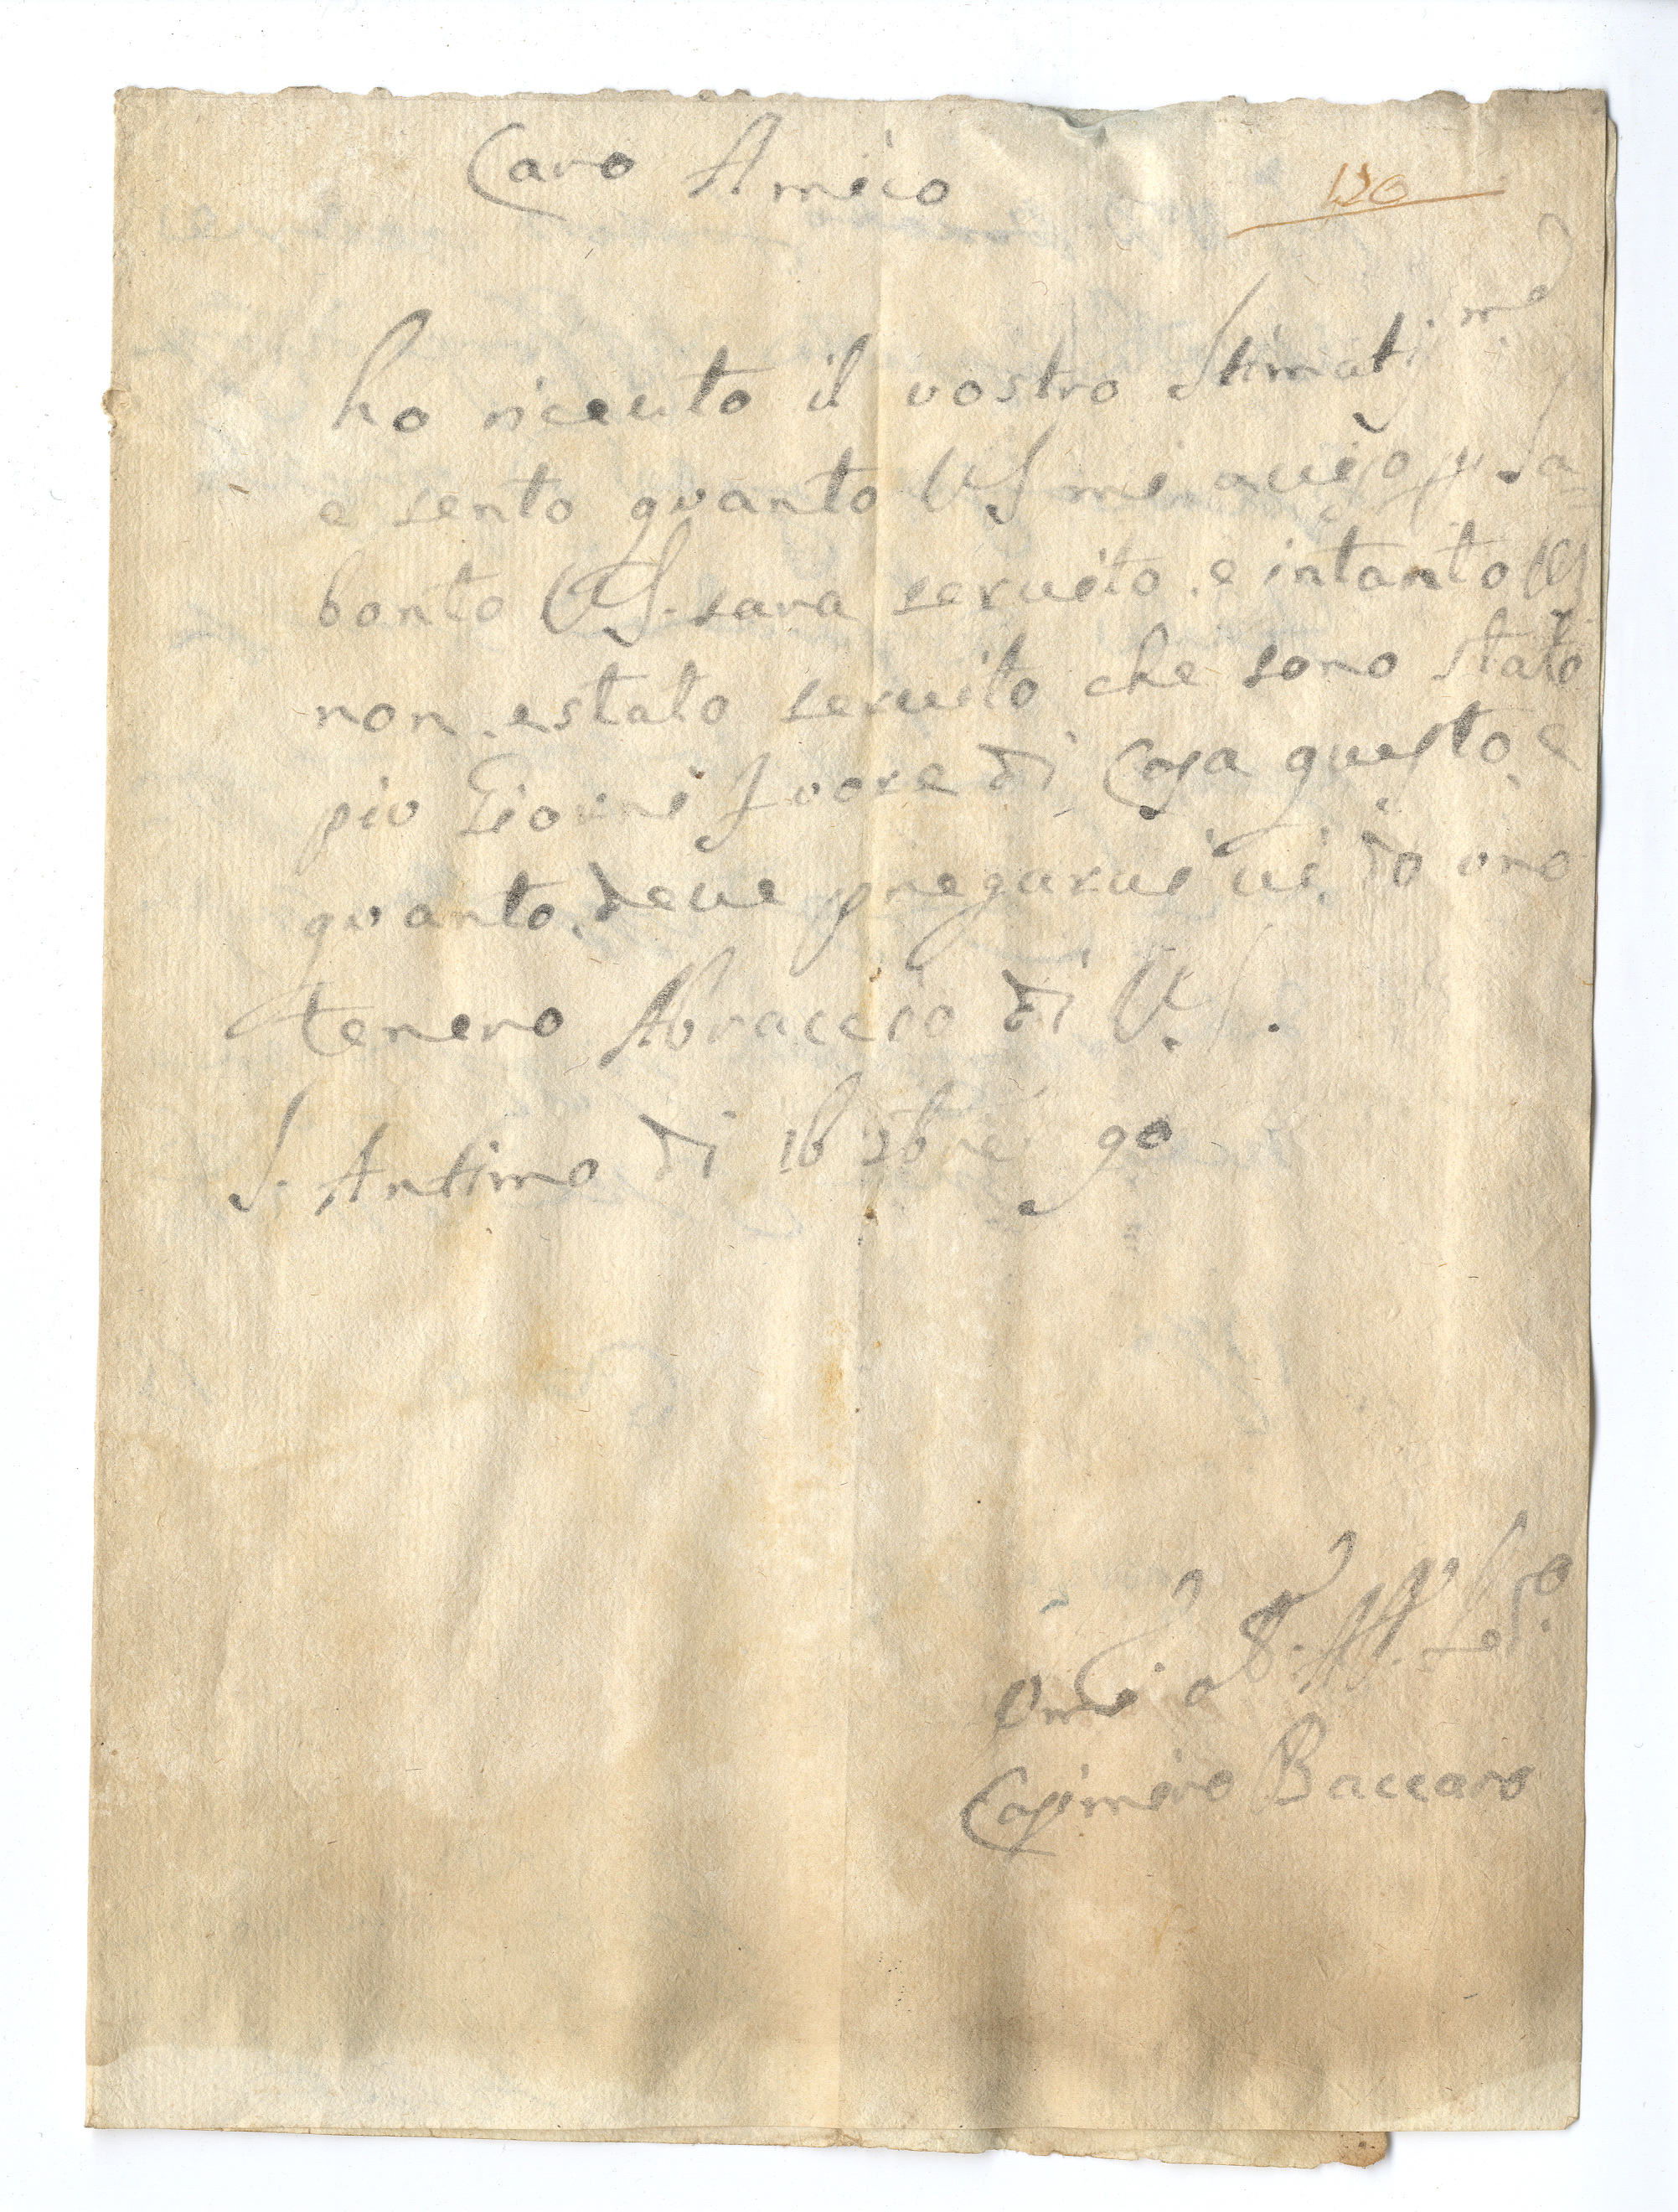 Caro Amico
120
ho riceuto il vostro Stimatis.mo
e sento quanto VS mi auisò p Sa=
bonto VS. sara seruito. e intanto VS.
non. estato seruito che sono stato
piu Giorni fuore di Casa questo. e
quanto. deue pregarui ui. do uno
tenero Abraccio di VS.
S. Antimo di 16 xbre 90
Casimiro Baccaro